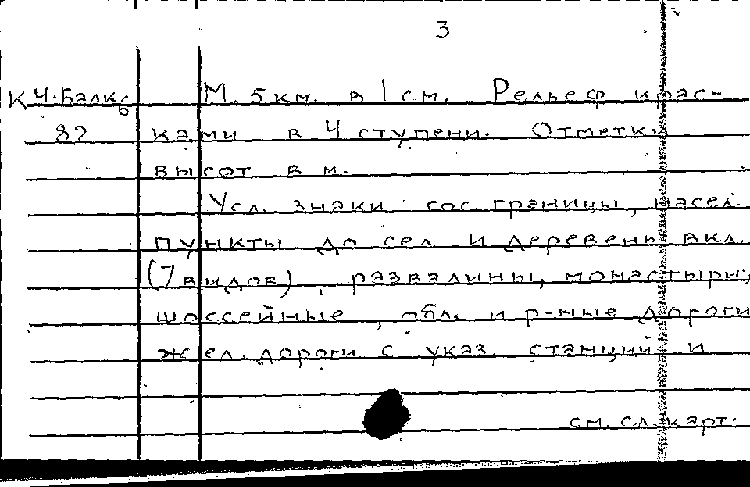 3
К Ч. Балк М. 5 км. в 1 см. Рельеф крас-
82 ками в 4 ступени. Отметк.
высот в м.
Усл. знаки: гос. границы, насел.
пункты до сел и деревень вкл.
(7 видов), развалины, монастыри,
шоссейные, обл. и р-ные дороги
жел. дороги с указ. станций и
см. сл. карт.